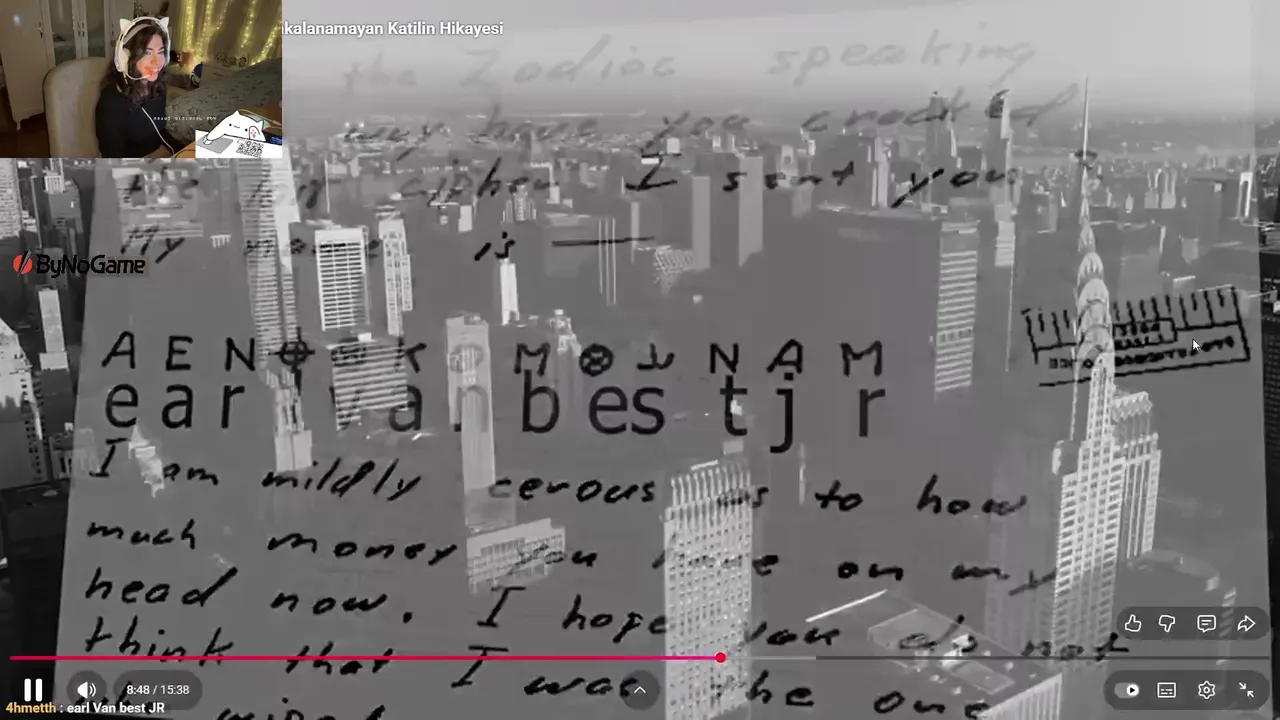 ıkalanamayan Katilin Hikayesi
the Zodiac speaking
have you cracked
the cipher I sent you
My name is —
ByNoGame
A E N K M N A M
ear van best jr
I am mildly cerous as to how
much money you have on my
head now. I hope you do not
think that I was the one
8:48 / 15:38
4hmetth : earl Van best JR